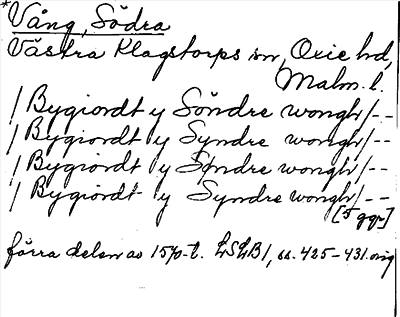 *Vång, Södra
Västra Klagstorps sn, Oxie hd,
Malm. l.
/ Bygiordt y Söndre wongh/--
/ Bygiordt y Syndre wongh/--
/ Bygiordt y Søndre wongh/--
/ Bygiordt y Syndre wongh/--
[5 ggr]
förra delen av 1570-t. LSLB1, ss. 425-431. orig